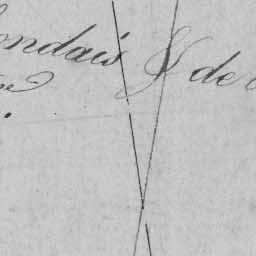 ondais & de